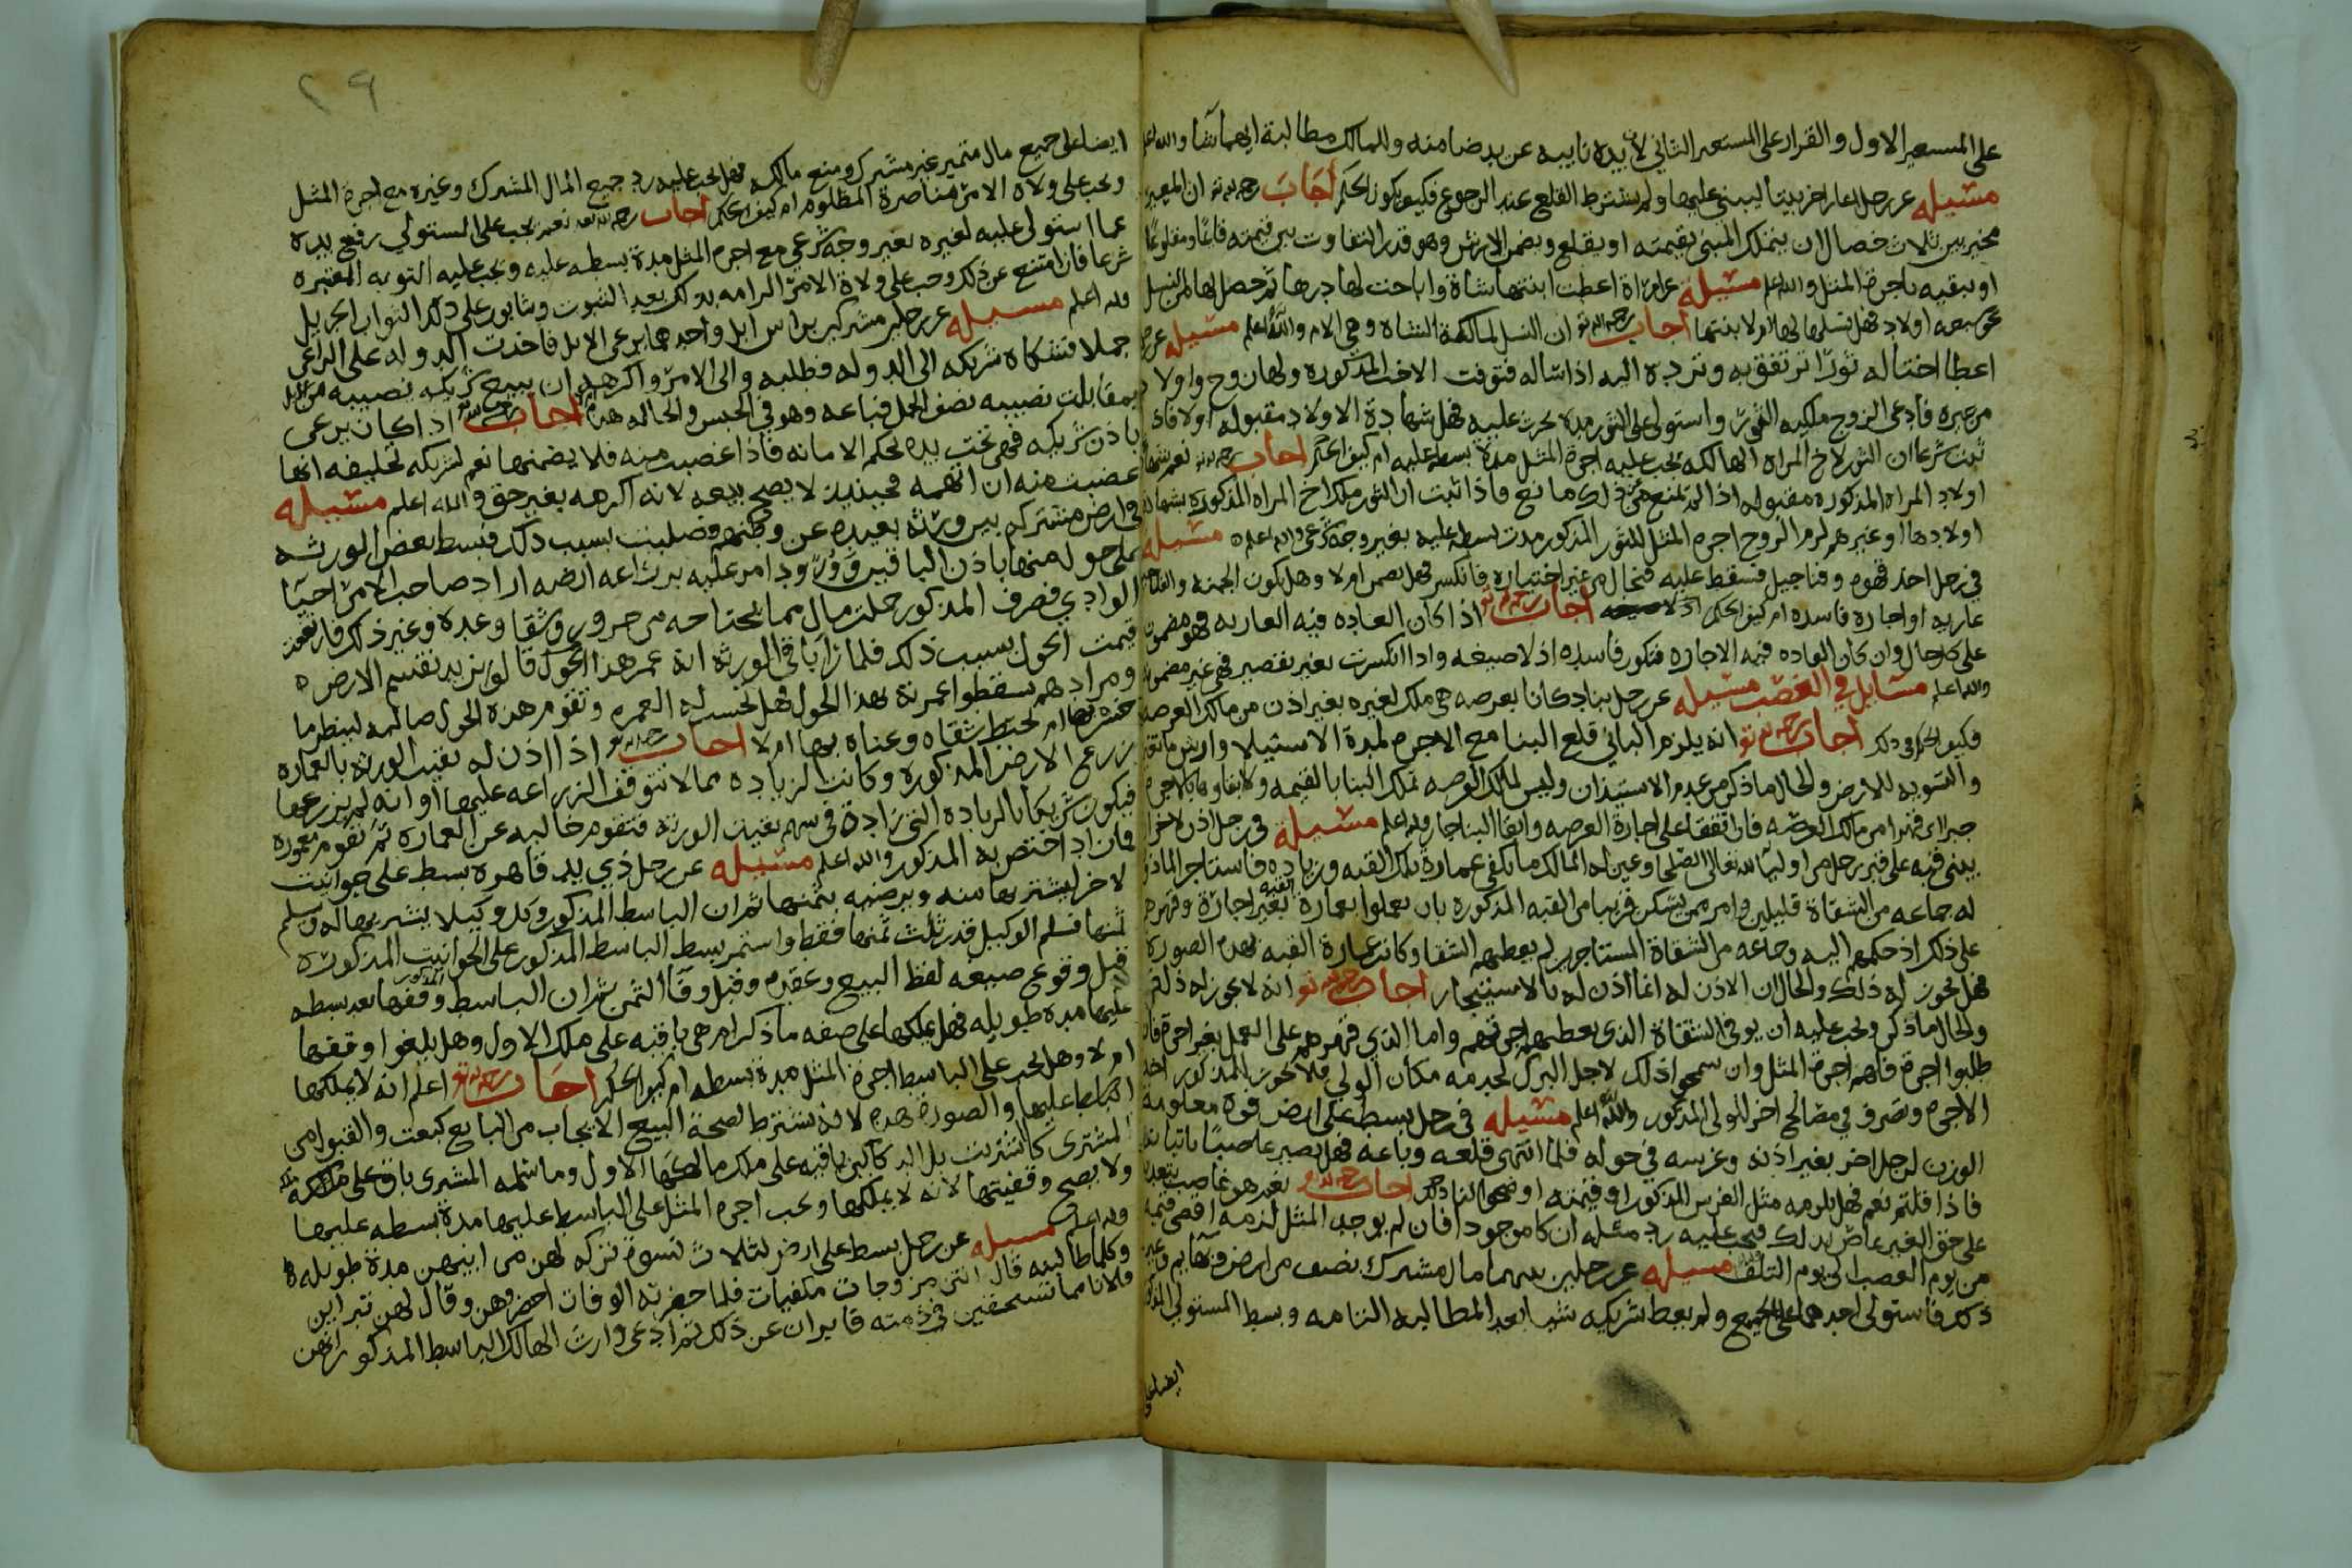 على المستعير الاول والقرار على المستعير الثاني لان يده نايبه عن يد ضامنه وللمالك مطالبة ايهما شا والله اعلم
مسئيله عن رجل اعار اخر بيتا ليبني عليها ولم يشترط القلع عند الرجوع فكيف يكون الحكم اجاب رحمه الله تع ان المعير
مخير بين ثلاث خصال ان يتملك المبنى بقيمته او يقلع ويضمن الارش وهو قدر التفاوت بين قيمته قايمًا ومقلوعًا
او يبقيه باجرة المثل والله اعلم مسئيله عن امراة اعطت ابنتها شاة واباحت لها درها ثم حصل لها من النسل
نحو سبعه اولاد فهل نسلها لها ام لا بنتها اجاب رحمه الله تع ان النسل لمالكة الشاة وهي الام والله اعلم مسئيله عن رجل
اعطا اختاله ثورًا ترتفق به وترده اليه اذا شاله فتوفت الاخت المذكوره ولها زوج واولاد
من غيره فادعى الزوج ملكيه الثور واستولى على الثور مدة يحرث عليه فهل شهادة الاولاد مقبوله او لا فاذا
ثبت شرعا ان الثور لاخ المراه الهالكه يجب عليه اجرة المثل مدة بسطه عليه ام كيف الحكم اجاب رحمه الله تع نعم شهادة
اولاد المراه المذكوره مقبوله اذا لم يمنع من ذلك مانع فاذا ثبت ان الثور ملك اخ المراه المذكورة بشهادة
اولادها او غيرهم لزم الزوج اجره المثل للثور المذكور مدت بسطه عليه بغير وجه شرعي والله اعلم مسئيله
في رجل اخذ قهوه وفناجيل فسقط عليه فنجال من غير اختياره فانكسر فهل يضمن ام لا وهل يكون الجمنه والفناجيل
عاريه او اجاره فاسده ام كيف الحكم اجاب رحمه الله تع اذا كان العاده فيه العاريه فهو مضمون
على كل حال وان كان العاده فيه الاجاره فتكون فاسده اذ لا صيغه واذا انكسرت بغير تقصير فهي غير مضمونه
والله اعلم مسايل في الغصب مسئيله عن رجل بنا دكانا بعرصه هي ملك لغيره بغير اذن من مالك العرصه
فكيف الحكم في ذلك اجاب رحمه الله تع انه يلزم الباني قلع البنا مع الاجره لمدة الاستيلا وارش ما نقص
والتسويه للارض والحال ما ذكر من عدم الاستيذان وليس لمالك العرصه تملك البنا بالقيمه ولا ابقاوه بالاجره
جبرا اي قهرا من مالك العرصه فان اتفقا على اجارة العرصه وابقا البنا جاز والله اعلم مسئيله في رجل اذن لاخر ان
يبني قبه على قبر رجل من اوليا الله تعالى الصلحا وعين له المالك ما يكفي عمارة تلك القبه وزياده فاستاجر الماذون
له جماعه من الشقاة قليلين وامر ممن يسكن قريبا من القبه المذكوره بان يعملوا بعمارة القبه بغير اجارة وقهرهم
على ذلك اذ حكمهم اليه وجماعه من الشقاة المستاجرين لم يعطهم الشقا وكانت عمارة القبه بهذه الصوره
فهل يجوز له ذلك والحال ان الاذن له انما اذن له بالاستيجار اجاب رحمه الله تع انه لا يجوز له ذلك
والحال ما ذكر ويجب عليه ان يوفي الشقاة الذي يعطيهم اجرتهم واما الذي قهرهم على العمل بغير اجرة فان
طلبوا اجرة فلهم اجرة المثل وان سمحوا ذلك لاجل البرك لخدمه مكان الولي فلا يجوز للمذكور اخذ
الاجره وتصرف في مصالح اخر للولي المذكور والله اعلم مسئيله في رجل بسط على ارض قوه معلومة
الوزن لرجل اخر بغير اذنه وغرسه في حوله فلما انتهى قلعه وباعه فهل يصير غاصبًا
فاذا قلتم نعم فهل يلزمه مثل الغرس المذكور او قيمته اوضحوا لنا ذلك اجاب رحمه الله تع نعم هو غاصب
على حق الغير عاص بذلك فيجب عليه رد مثله ان كان موجودا فان لم يوجد المثل لزمه اقصى قيمه
من يوم الغصب الى يوم التلف مسئيله عن رجلين بينهما مال مشترك نصف من ارض وبهايم وغير
ذلك فاستولى احدهما على الجميع ولم يعط شريكه شيا بعد المطالبه التامه وبسط المستولي المذكور
ايضا على
٢٩
ايضا على جميع مال متميز غير مشترك ومنع مالكه فهل يجب عليه رد جميع المال المشترك وغيره مع اجرة المثل
ويجب على ولاة الامر مناصرة المظلوم ام كيف الحكم اجاب رحمه الله تع نعم يجب على المستولي رفع يده
عما استولى عليه لغيره بغير وجه شرعي مع اجره المثل مدة بسطه عليه ويجب عليه التوبه المعتبره
شرعا فان امتنع عن ذلك وجب على ولاة الامر الزامه بذلك بعد الثبوت ويثابون على ذلك الثواب الجزيل
والله اعلم مسئيله عن رجلين مشتركين براس ابل واحدهما يرعى الابل فاخذت الدوله على الراعي
جملا فشكاه شريكه الى الدوله فطلبه والي الامر واكرهه ان يبيع شريكه نصيبه من الابل
بمقابلت نصيبه نصف الجمل فباعه وهو في الحبس والحاله هذه اجاب رحمه الله تع اذا كان يرعى
باذن شريكه فهي تحت يده بحكم الامانه فاذا غصبت منه فلا يضمنها نعم لشريكه تحليفه انها
غصبت منه ان اتهمه فحينيذ لا يصح بيعه لانه اكرهه بغير حق والله اعلم مسئيله
في ارض مشتركه بين ورثة بعيده عن وطنهم وصلبت بسبب ذلك فبسط بعض الورثه
على حوله منها باذن الباقين وامر عليه بزراعه ارضه اراد صاحب الامر احيا
الوادي فصرف المذكور جملت مال مما يحتاجه من ضرور وشقا وعده وغير ذلك فارتفعت
قيمت الحول بسبب ذلك فلما راا باقي الورثه انه عمر هذا الحول قالو نريد نقسيم الارض
ومرادهم يسقطوا غرمة بهذا الحول فهل يحسب له العمره وتقوم هذه الحول صالبه لينظر ما
خسره بها ام يحبط شقاه وعناه بها ام لا اجاب رحمه الله تع اذا اذن له بقيت الورثه بالعماره
بزرع الارض المذكوره وكانت الزياده مما لا تتوقف الزراعه عليها او انه لم يزرعها
فيكون شريكا بالزياده التي زادة في سهم بقيت الورثه فتقوم خاليه عن العماره ثم تقوم معموره
فما زاد اختص به المذكور والله اعلم مسئيله عن رجل ذي يد قاهره بسط على حوانيت
لاخر ليشتريها منه ويرضيه بثمنها ثم ان الباسط المذكور وكل وكيلا يشتريها له وسلم
ثمنها فسلم الوكيل قدر ثلث ثمنها فقط واستمر بسط الباسط المذكور على الحوانيت المذكوره
قبل وقوع صيغه لفظ البيع وعقده وقبل وفا الثمن ثم ان الباسط المذكور وقفها بعد بسطه
عليها مده طويله فهل يملكها على صفه ما ذكر ام هي باقيه على ملك الاول وهل يلغوا وقفها
ام لا وهل يجب على الباسط اجرة المثل مدة بسطه ام كيف الحكم اجاب رحمه الله تع اعلم انه لا يملكها
الباسط عليها والصورة هذه لانه يشترط لصحة البيع الايجاب من البايع كبعت والقبول من
المشتري كاشتريت بل الدكاكين باقيه على ملك مالكها الاول وما سلمه المشتري باق على ملكه
ولا يصح وقفيتها لانه لا يملكها ويجب اجره المثل على الباسط عليها مدة بسطه عليها
والله اعلم مسئيله عن رجل بسط على ارض لثلاث نسوة تركه لهن من ابيهن مدة طويله
وكلما طالبنه قال انتن مزوجات مكفيات فلما حضرته الوفات احضرهن وقال لهن تبراين
فلانا مما تستحقين في ذمته فابران عن ذلك ثم ادعى وارث الهالك الباسط المذكور انهن